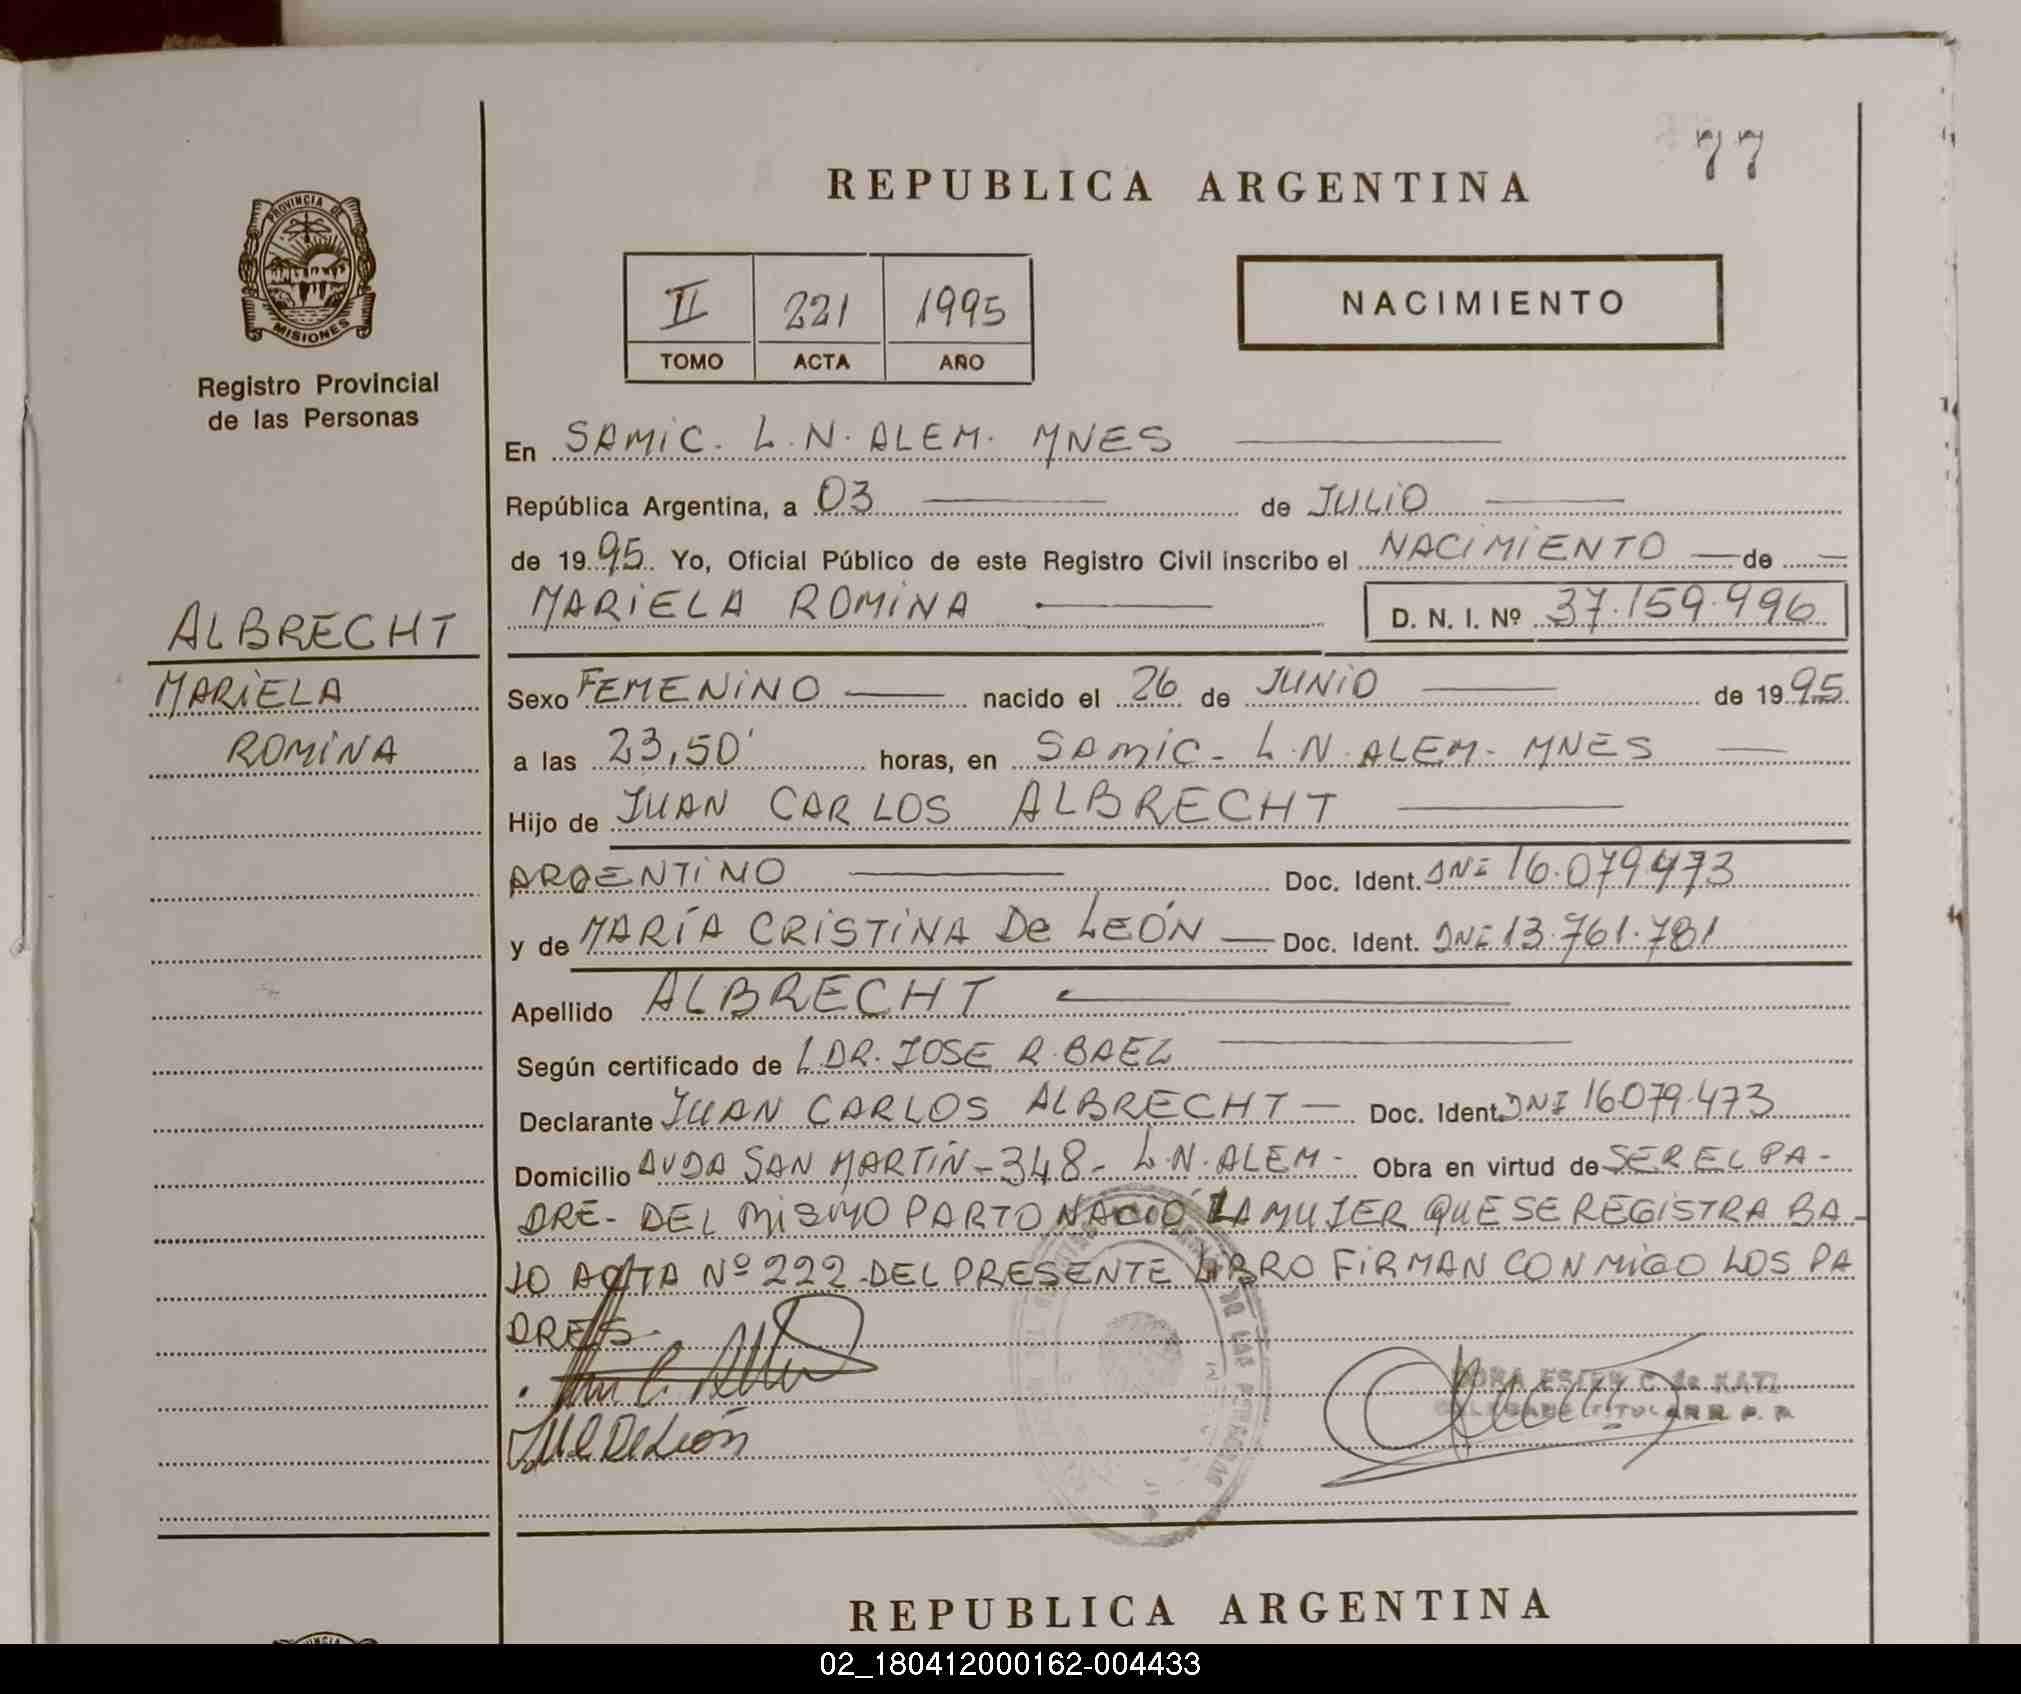 77
REPUBLICA ARGENTINA
PROVINCIA DE
MISIONES
Registro Provincial
de las Personas
II 221 1995
TOMO ACTA AÑO
NACIMIENTO
En SAMIC. L.N. ALEM. MNES
República Argentina, a 03 de JULIO
de 1995. Yo, Oficial Público de este Registro Civil inscribo el NACIMIENTO de
MARIELA ROMINA D. N. I. Nº 37.159.996
ALBRECHT
MARIELA
ROMINA
Sexo FEMENINO nacido el 26 de JUNIO de 1995
a las 23,50' horas, en SAMIC- L.N. ALEM- MNES
Hijo de JUAN CARLOS ALBRECHT
ARGENTINO Doc. Ident. DNI 16.079.473
y de MARÍA CRISTINA De LEÓN Doc. Ident. DNI 13.761.781
Apellido ALBRECHT
Según certificado de L.DR. JOSE R. BAEZ
Declarante JUAN CARLOS ALBRECHT Doc. Ident. DNI 16079.473
Domicilio AVDA SAN MARTÍN-348- L.N. ALEM- Obra en virtud de SER EL PA-
DRE- DEL MISMO PARTO NACIÓ LA MUJER QUE SE REGISTRA BA-
JO ACTA Nº 222-DEL PRESENTE LIBRO FIRMAN CONMIGO LOS PA
DRES-
De León
REPUBLICA ARGENTINA
02_180412000162-004433